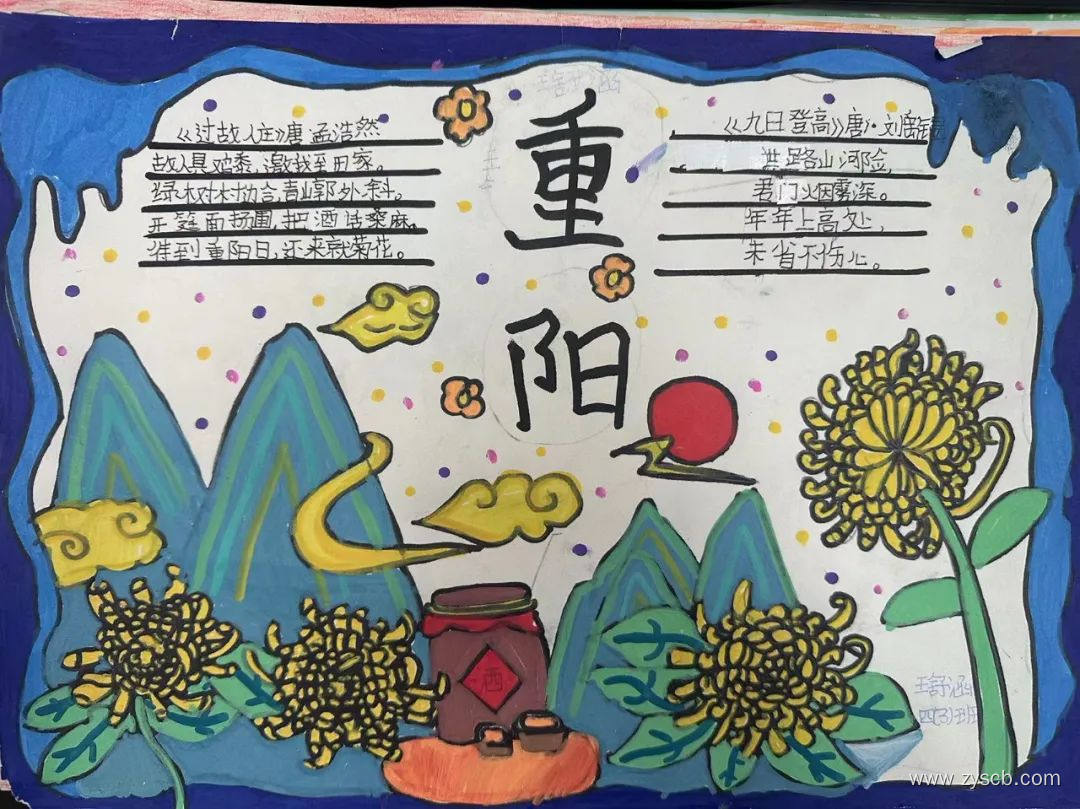 重阳
《过故人庄》唐 孟浩然
故人具鸡黍,邀我至田家。
绿树村边合,青山郭外斜。
开筵面场圃,把酒话桑麻。
待到重阳日,还来就菊花。
《九日登高》唐·刘
路山河险,
君门火烟雾深。
年年上高处,
未省不伤心。
酒
舒涵
四(3)班
www.zyscb.com